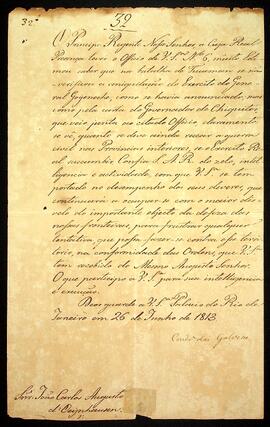 32ª
39
O Principe Regente Nosso Senhor a Cuja Real
Prezença levei o Officio de V. S.ª Nº 6, muito lhe
que na batalha de Tucuman se não
verificou a aniquilação do Exercito do Gene-
ral Goyeneche, como se havia annunciado, mas
como pela carta do Governador de Chiquitos,
que veio junta ao citado Officio claramente
se vê, quanto se deve ainda recear a guerra
civil nas Provincias interiores, se o Exercito Re-
al succumbir Confia S. A. R. do zelo, intel-
ligencia e actividade, com que V. S.ª se tem
portado no desempenho dos seus deveres, que
continuará a occupar-se com o maior dis-
velo do importante objecto da defeza das
nossas fronteiras, para frustrar qualquer
tentativa, que possa fazer-se contra esse terri-
torio, na conformidade das Ordens, que V. S.ª
tem recebido do Mesmo Augusto Senhor.
O que participo a V. S.ª para sua intelligencia
e execução.
Deos guarde a V. S.ª Palacio do Rio de
Janeiro em 26 de Junho de 1813
Conde das Galveas
Snr. João Carlos Augusto
d'Oeynhausen